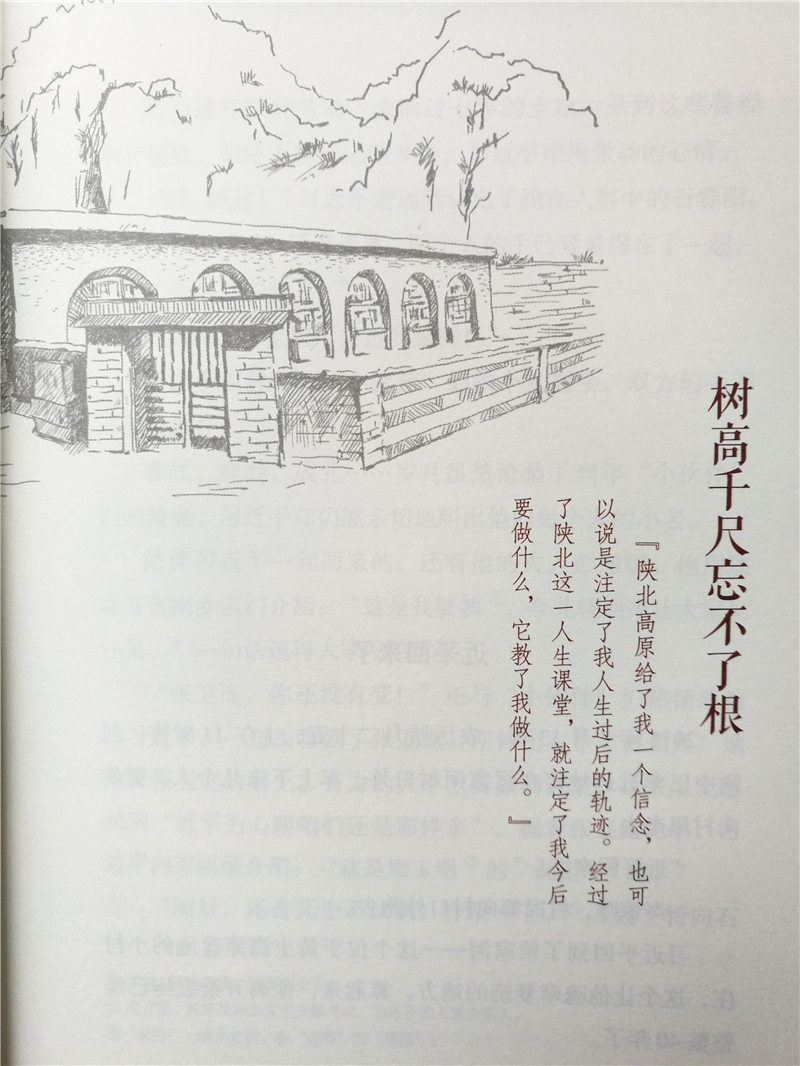 树高千尺忘不了根
『陕北高原给了我一个信念，也可
以说是注定了我人生过后的轨迹。经过
了陕北这一人生课堂，就注定了我今后
要做什么，它教了我做什么。』